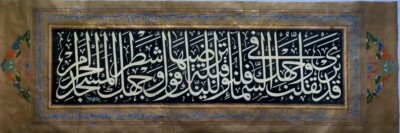 قد نرى تقلب وجهك في السماء فلنولينك قبلة ترضيها فول وجهك شطر المسجد الحرام